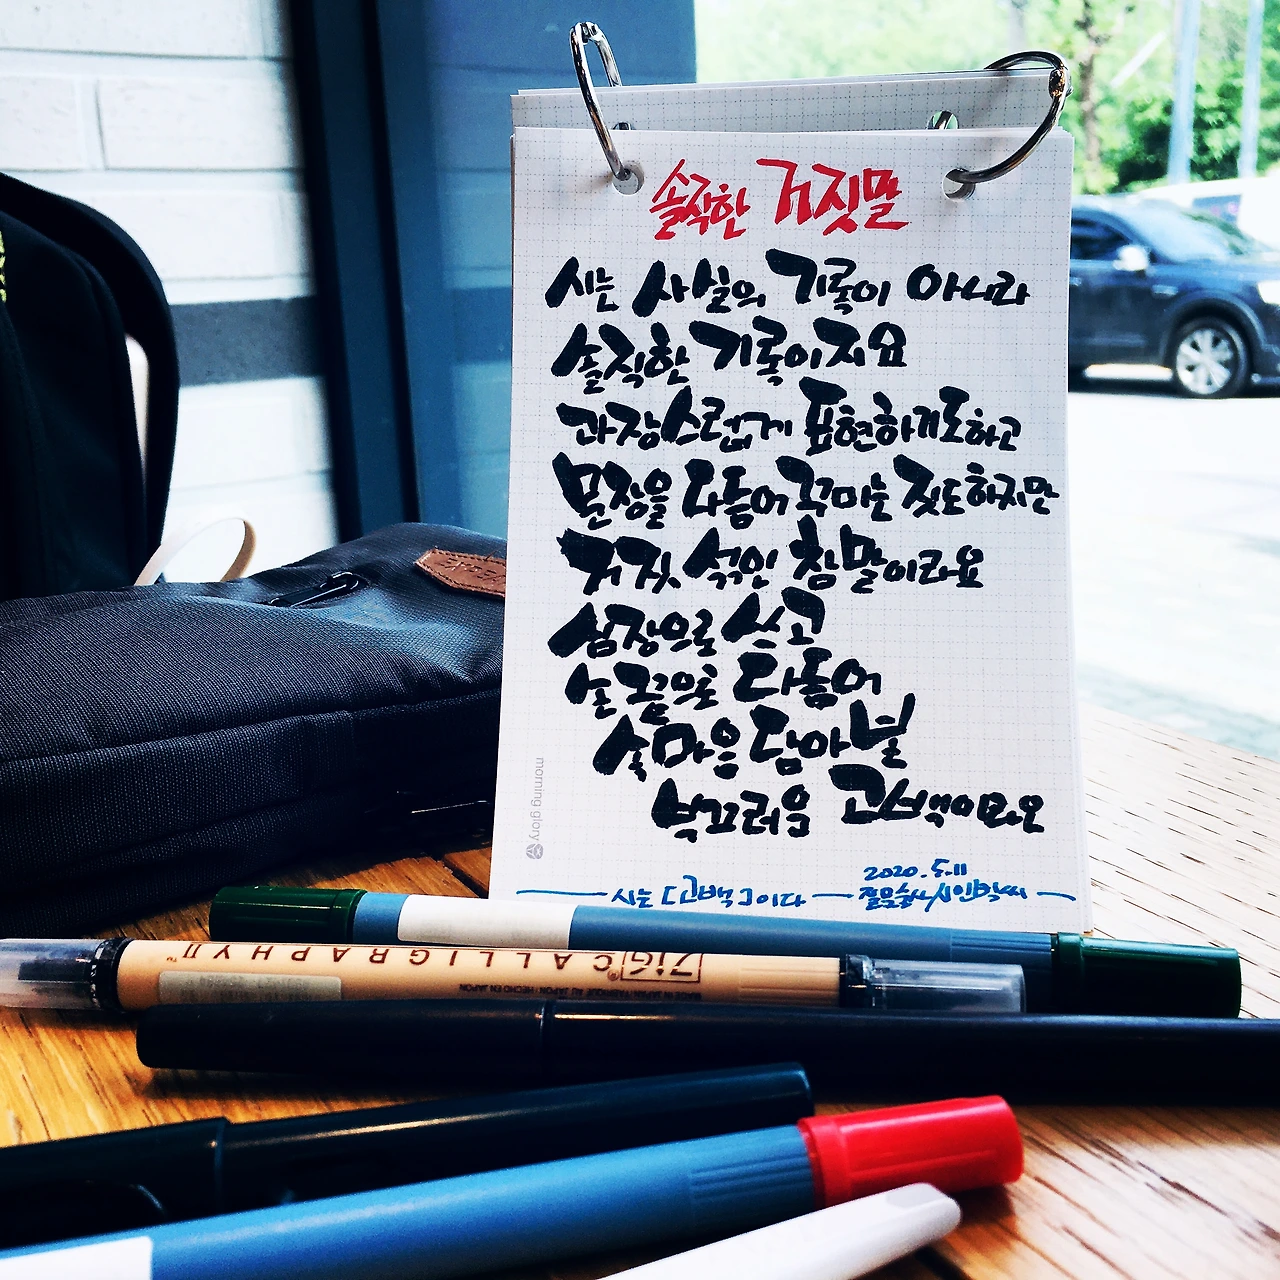 솔직한 거짓말
시는 사실의 기록이 아니라
솔직한 기록이지요
과장스럽게 표현하기도하고
문장을 다듬어 꾸미는 것도하지만
거짓 섞인 참말이라요
심장으로 쓰고
손끝으로 다듬어
속마음 담아낸
부끄러움 고백이라오
2020. 5. 11
시는 [고백]이다
morning glory
ZIG CALLIGRAPHY II
MADE IN JAPAN